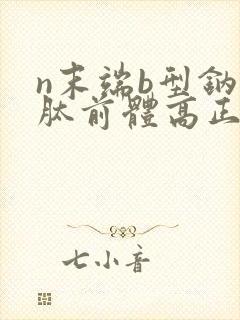 n末端b型鈉
肽前體高正
七小音